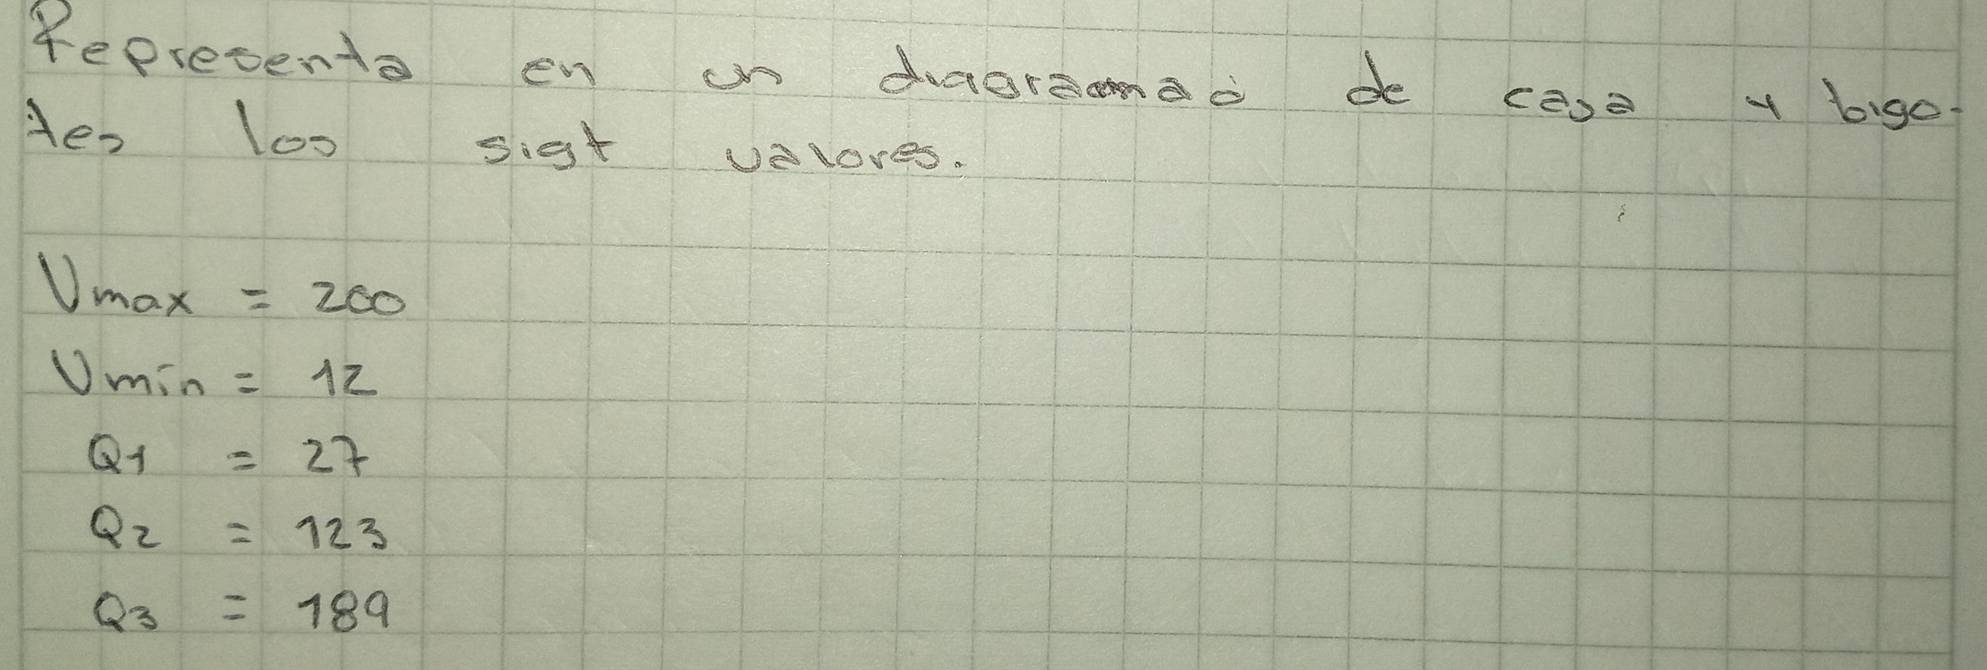 Representa en un diagrama de caja y bigo-
tes los sigt valores.
Vmax = 200
Vmin = 12
Q1 = 27
Q2 = 123
Q3 = 189